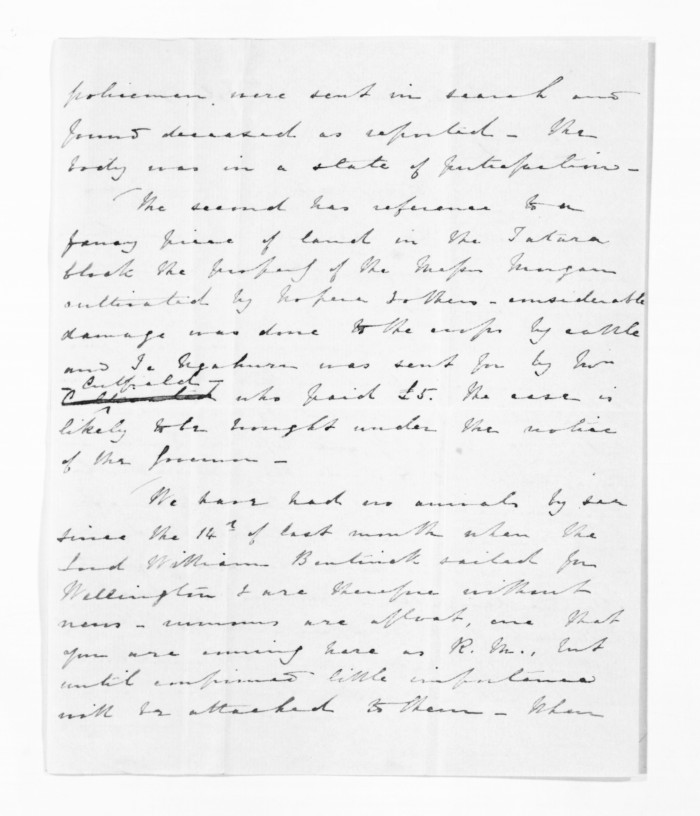 policeman were sent in search and
found deceased as reported - the
body was in a state of putrefaction -
The second has reference to a
piece of land in the Tutara
block the property of the Messrs Morgan
cultivated by Hopera & others - considerable
damage was done to the crops by cattle
and Te Ngahuru was sent for by Mr
Cutfield -
who paid £5. The case is
likely to be brought under the notice
of the Governor -
We have had no arrivals by sea
since the 14th of last month when the
Lord William Bentinck sailed for
Wellington & are therefore without
news - rumours are afloat, one that
you are coming here as R. M., but
until confirmed little importance
will be attached to them - When